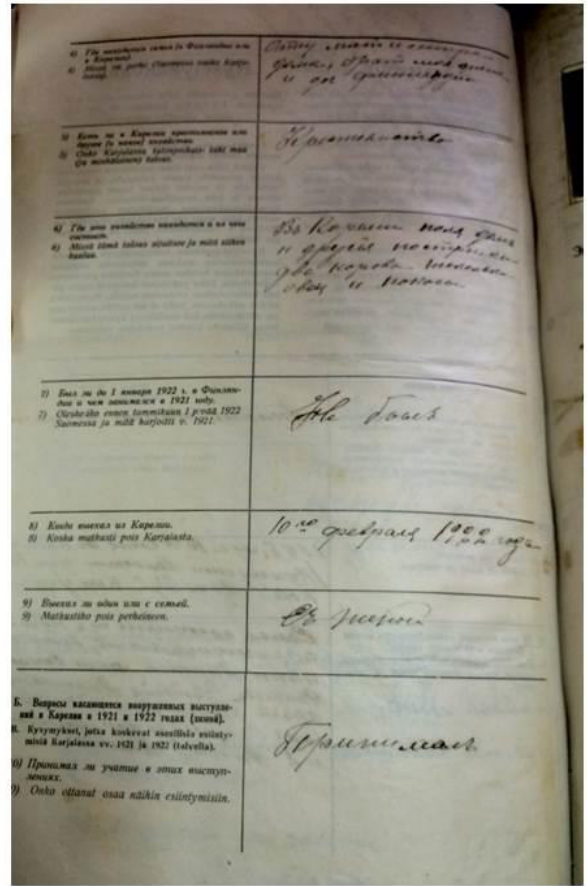 4) Где находится семья (в Финляндии или в Карелии).
4) Missä on perhe (Suomessa vaiko Karjalassa).
Отец мать и
дома, брат
и
5) Есть ли в Карелии крестьянское или другое (и какое) хозяйство.
5) Onko Karjalassa
(ja minkälainen) talous.
Крестьянство
6) Где это хозяйство находится и из чего состоит.
6) Missä tämä talous sijaitsee ja mitä siihen kuuluu.
Въ Карелии поля дома
и другая постройка
две корова
овец и покосы
7) Был ли до 1 января 1922 г. в Финлян-
дии и чем занимался в 1921 году.
7) Olesteliko ennen tammikuun 1 p:vää 1922
Suomessa ja mitä harjoitti v. 1921.
Не былъ
8) Когда выехал из Карелии.
8) Koska matkusti pois Karjalasta.
10го февраля 1922 года
9) Выехал ли один или с семьей.
9) Matkustiko pois perheineen.
Съ женой
Б. Вопросы касающиеся вооруженных выступле-
ний в Карелии в 1921 и 1922 годах (зимой).
B. Kysymykset, jotka koskevat aseellisia esiinty-
misiä Karjalassa vv. 1921 ja 1922 (talvella).
10) Принимал ли участие в этих выступ-
лениях.
10) Onko ottanut osaa näihin esiintymisiin.
Принималъ